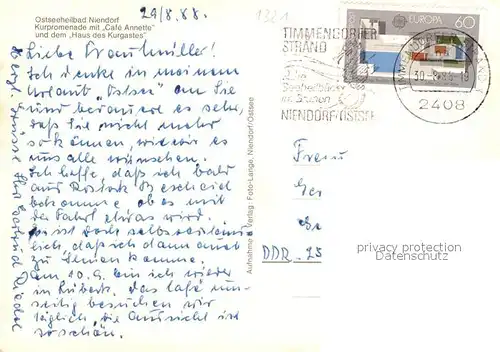 Ostseeheilbad Niendorf
Kurpromenade mit „Café Annette"
und dem „Haus des Kurgastes"
29/8.88.
1321
Liebe Frau
Ich denke in meinem
Urlaub „Ostsee" an Sie
und bedauere es sehr,
daß Sie nicht mehr
so können, wie wir es
uns alle wünschen.
Ich hoffe, daß ich bald
aus Rostock Bescheid
bekomme ob es mit
der Fahrt etwas wird.
Es ist doch selbstverständ-
lich, daß ich dann auch
zu Ihnen komme.
Am 10.9. bin ich wieder
in Lübeck. Das Café um-
seitig besuchen wir
täglich, die Aussicht ist
so schön.
Herzl. Grüsse Ihre Gertrud
Aufnahme u. Verlag: Foto-Lange, Niendorf/Ostsee
TIMMENDORFER
STRAND
Seeheilbäder
NIENDORF/OSTSEE
EUROPA 60
2408
Frau
DDR-25
privacy protection
Datenschutz